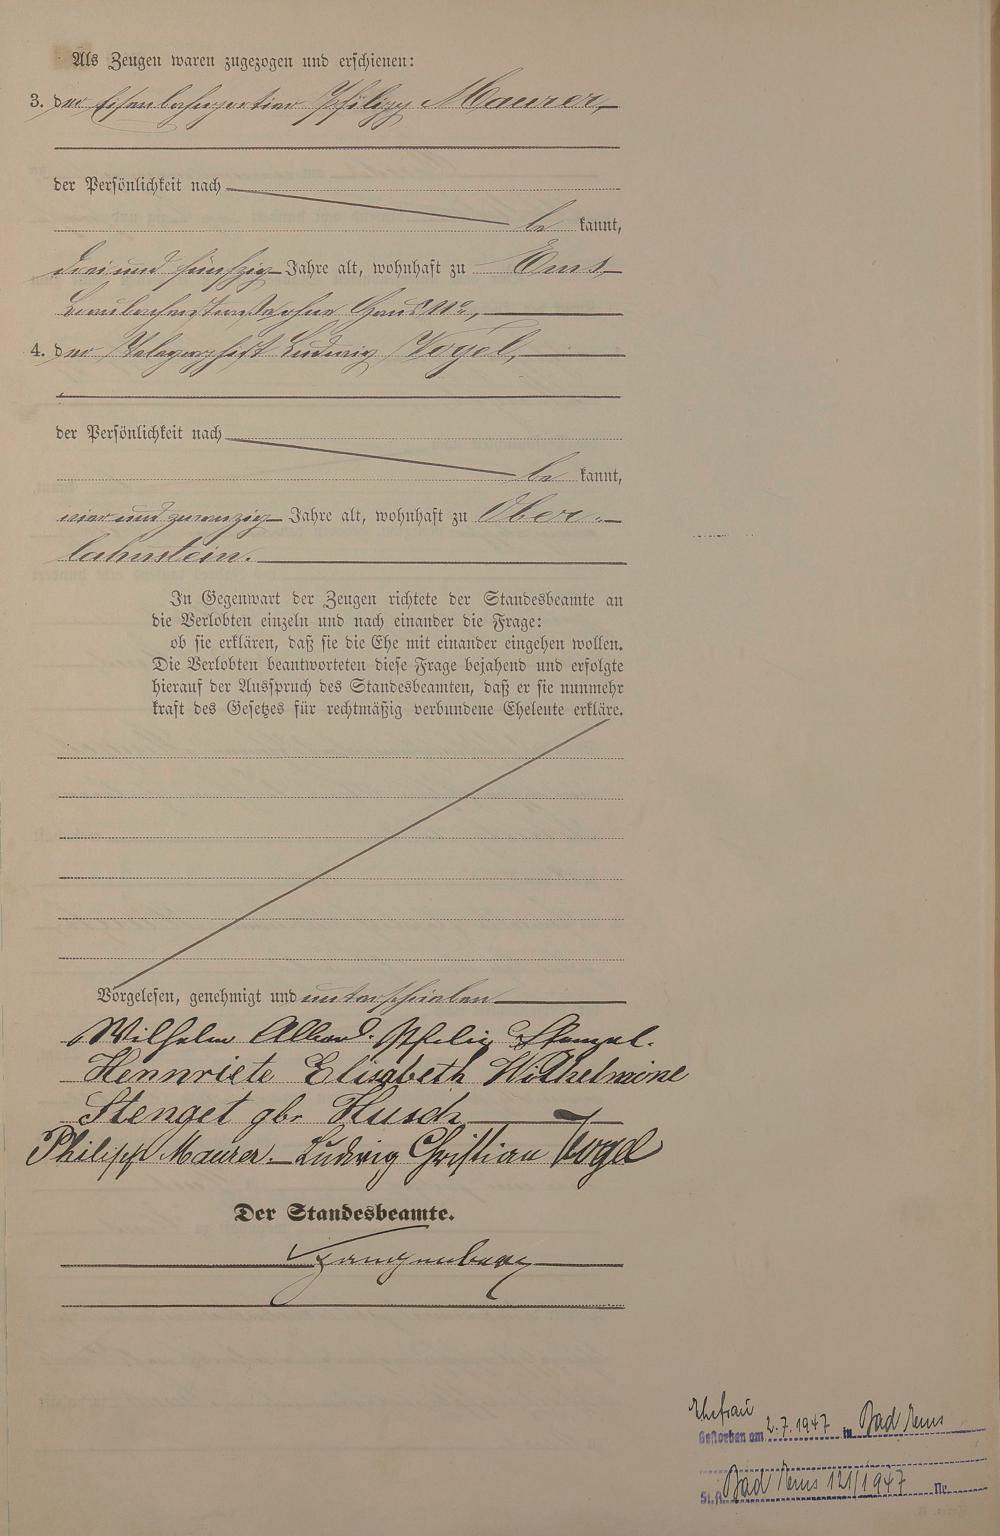 Als Zeugen waren zugezogen und erschienen:
3. der Eisenbahnportier Philipp Maurer,
der Persönlichkeit nach
be kannt,
drei und fünfzig Jahre alt, wohnhaft zu Ems
ohne Haus No,
4. der Telegraphist Ludwig Vogel,
der Persönlichkeit nach
be kannt,
vier und zwanzig Jahre alt, wohnhaft zu Ober-
lahnstein.
In Gegenwart der Zeugen richtete der Standesbeamte an
die Verlobten einzeln und nach einander die Frage:
ob sie erklären, daß sie die Ehe mit einander eingehen wollen.
Die Verlobten beantworteten diese Frage bejahend und erfolgte
hierauf der Ausspruch des Standesbeamten, daß er sie nunmehr
kraft des Gesetzes für rechtmäßig verbundene Eheleute erkläre.
Vorgelesen, genehmigt und unterschrieben
Wilhelm Albert Philip Stengel.
Hennriete Elisabeth Wilhelmine
Stengel gbr Husch
Philipp Maurer. Ludwig Christian Vogel
Der Standesbeamte.
Ehefrau
Gestorben am 2.7.1947 in Bad Ems
St.A. Bad Ems 121/1947 Nr.